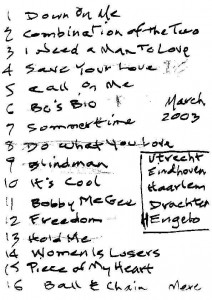 1 Down On Me
2 Combination of the Two
3 I Need a Man To Love
4 Save Your Love
5 Call on Me
6 Bo's Bio
7 Sommertime
8 Do What You Love
9 Blindman
10 It's Cool
11 Bobby McGee
12 Freedom
13 Hold Me
14 Women Is Losers
15 Piece of My Heart
16 Ball & Chain Merc
March
2003
Utrecht
Eindhoven
Haarlem
Drachten
Hengelo